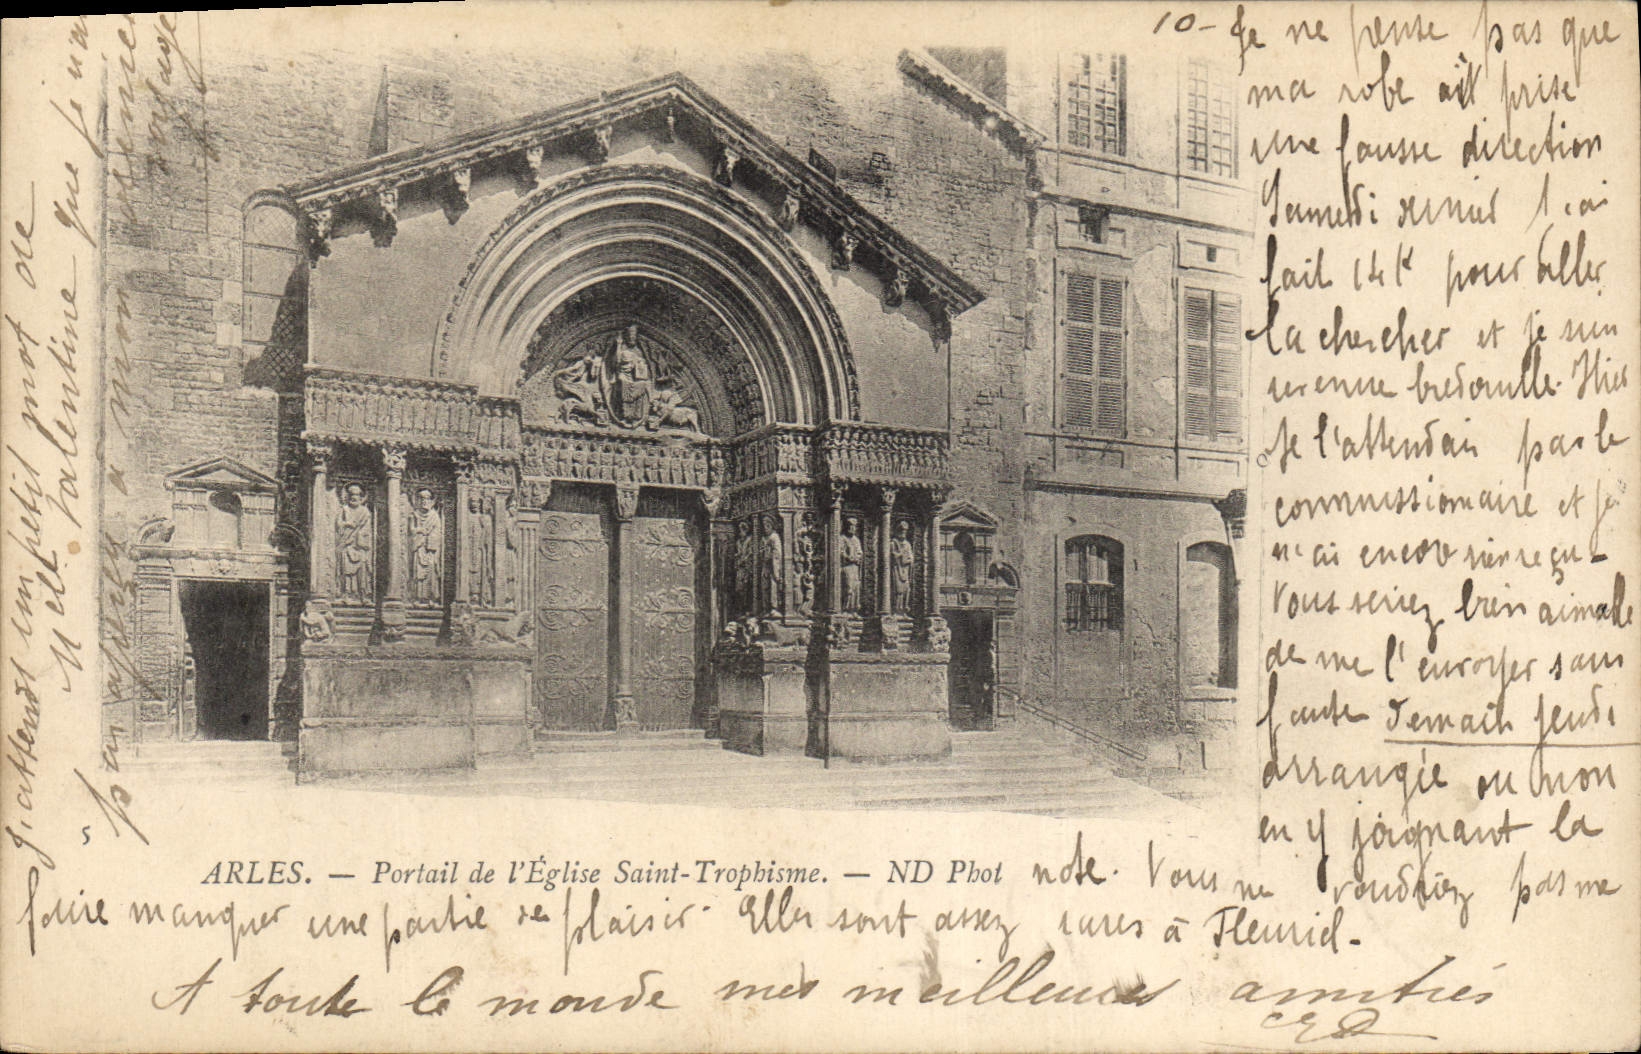 10- Je ne pense pas que
ma robe ait prise
une fausse direction
Samedi dernier j'ai
fait 14 k pour aller
la chercher et je suis
revenue bredouille. Hier
Je l'attendais par le
commissionnaire et je
n'ai encore rien reçu -
Vous seriez bien aimable
de me l'envoyer sans
faute demain jeudi
arrangée ou non
en y joignant la
note. Vous ne voudriez pas me
faire manquer une partie de plaisir. Elles sont assez rares à Fleuriel -
A toute le monde mes meilleures amitiés
ARLES. — Portail de l'Église Saint-Trophisme. — ND Phot
J'attends un petit mot de
Melle Valentine que je n'ai
pas à mon
voyage